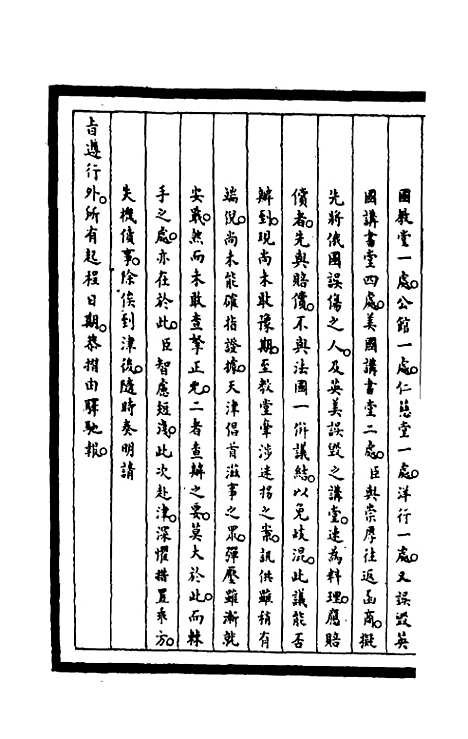 國教堂一處。公館一處。仁慈堂一處。洋行一處。又誤毀英
國講書堂四處。美國講書堂二處。臣與崇厚往返函商。擬
先將俄國誤傷之人及英美誤毀之講堂。速為料理。應賠
償者。先與賠償。不與法國一併議結。以免歧混。此議能否
辦到。現尚未敢豫期。至教堂牽涉迷拐之案。訊供雖稍有
端倪。尚未能確指證據。天津倡首滋事之眾。彈壓雖漸就
安戢。然而未敢查拏正兇。二者查辦之要。莫大於此。而棘
手之處。亦在於此。臣智慮短淺。此次赴津。深懼措置乖方。
失機僨事。除俟到津後。隨時奏明請
旨遵行外。所有起程日期。恭摺由驛馳報。